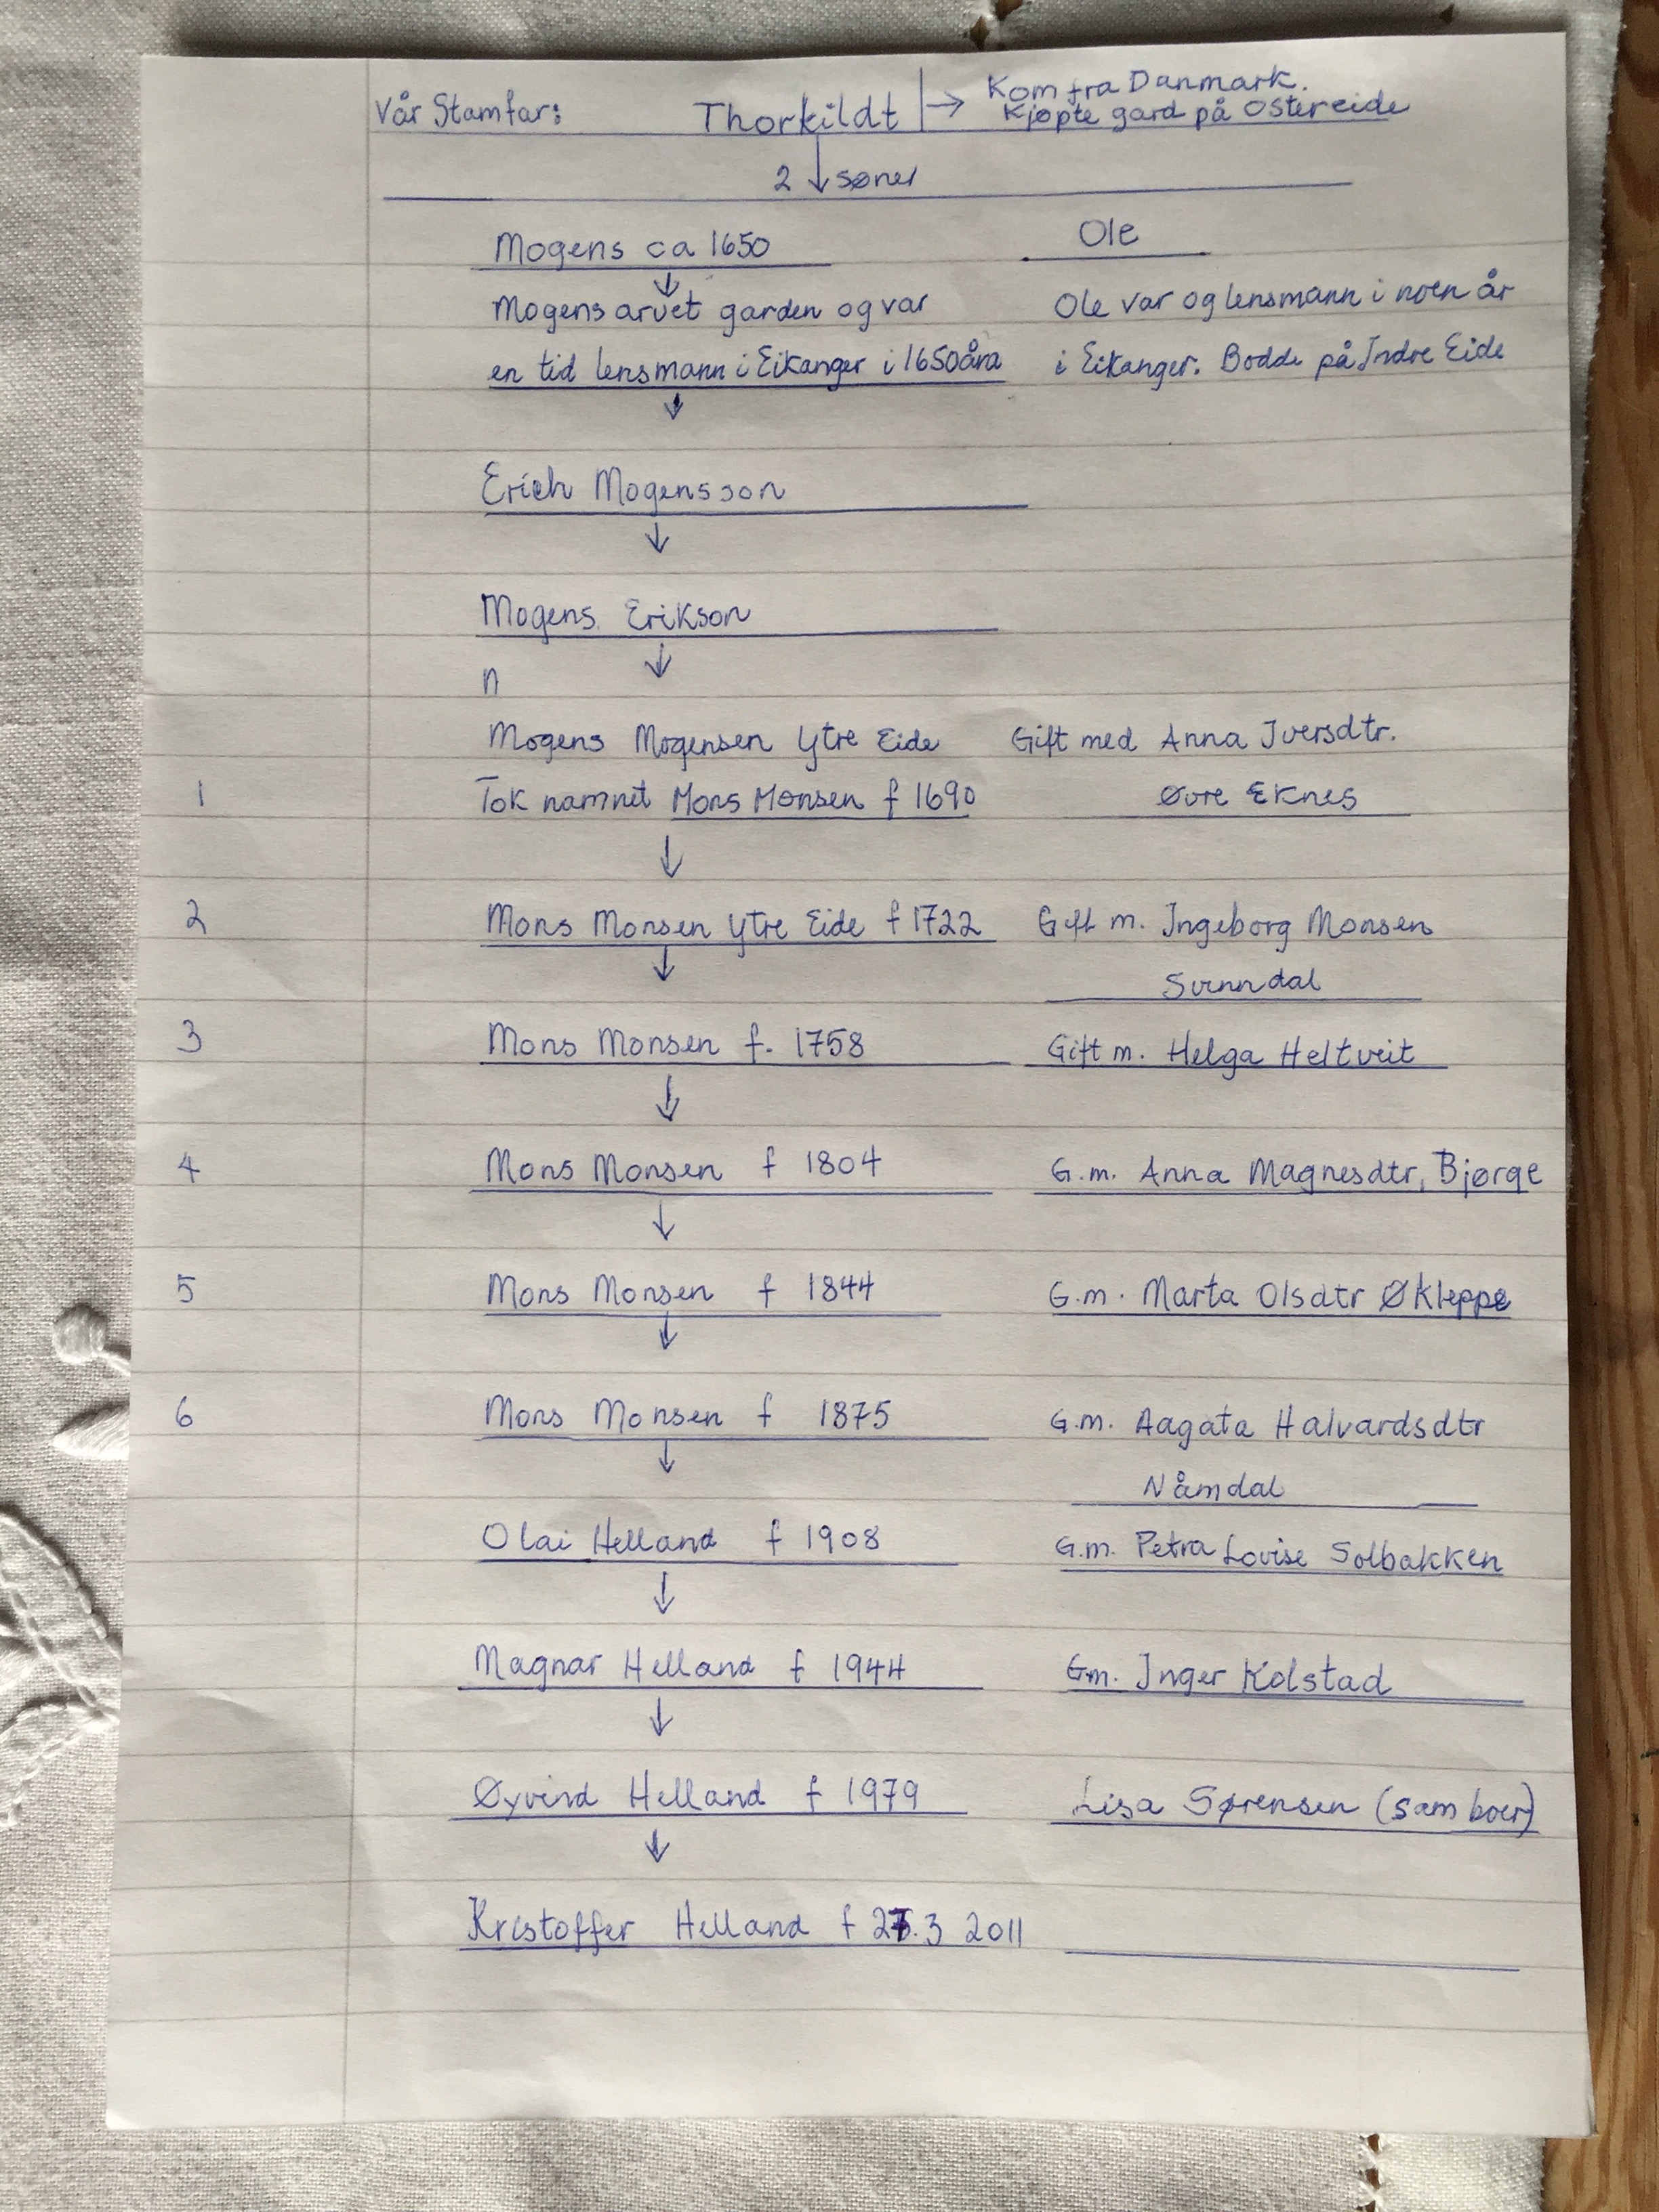 Vår Stamfar: Thorkildt → Kom fra Danmark.
Kjøpte gard på Ostereide
2 ↓ søner
Mogens ca 1650 Ole
↓
Mogens arvet garden og var Ole var og lensmann i noen år
en tid lensmann i Eikanger i 1650åra i Eikanger. Bodde på Indre Eide
↓
Erich Mogensson
↓
Mogens Erikson
↓
n
Mogens Mogensen Ytre Eide Gift med Anna Iversdtr.
1 Tok namnet Mons Monsen f 1690 Øvre Eknes
↓
2 Mons Monsen Ytre Eide f 1722 Gift m. Ingeborg Monsen
↓ Svenndal
3 Mons Monsen f. 1758 Gift m. Helga Heltveit
↓
4 Mons Monsen f 1804 G.m. Anna Magnesdtr, Bjørge
↓
5 Mons Monsen f 1844 G.m. Marta Olsdtr Økleppe
↓
6 Mons Monsen f 1875 G.m. Aagata Halvardsdtr
↓ Nåmdal
Olai Helland f 1908 G.m. Petra Lovise Solbakken
↓
Magnar Helland f 1944 Gm. Inger Kolstad
↓
Øyvind Helland f 1979 Lisa Sørensen (samboer)
↓
Kristoffer Helland f .3 2011